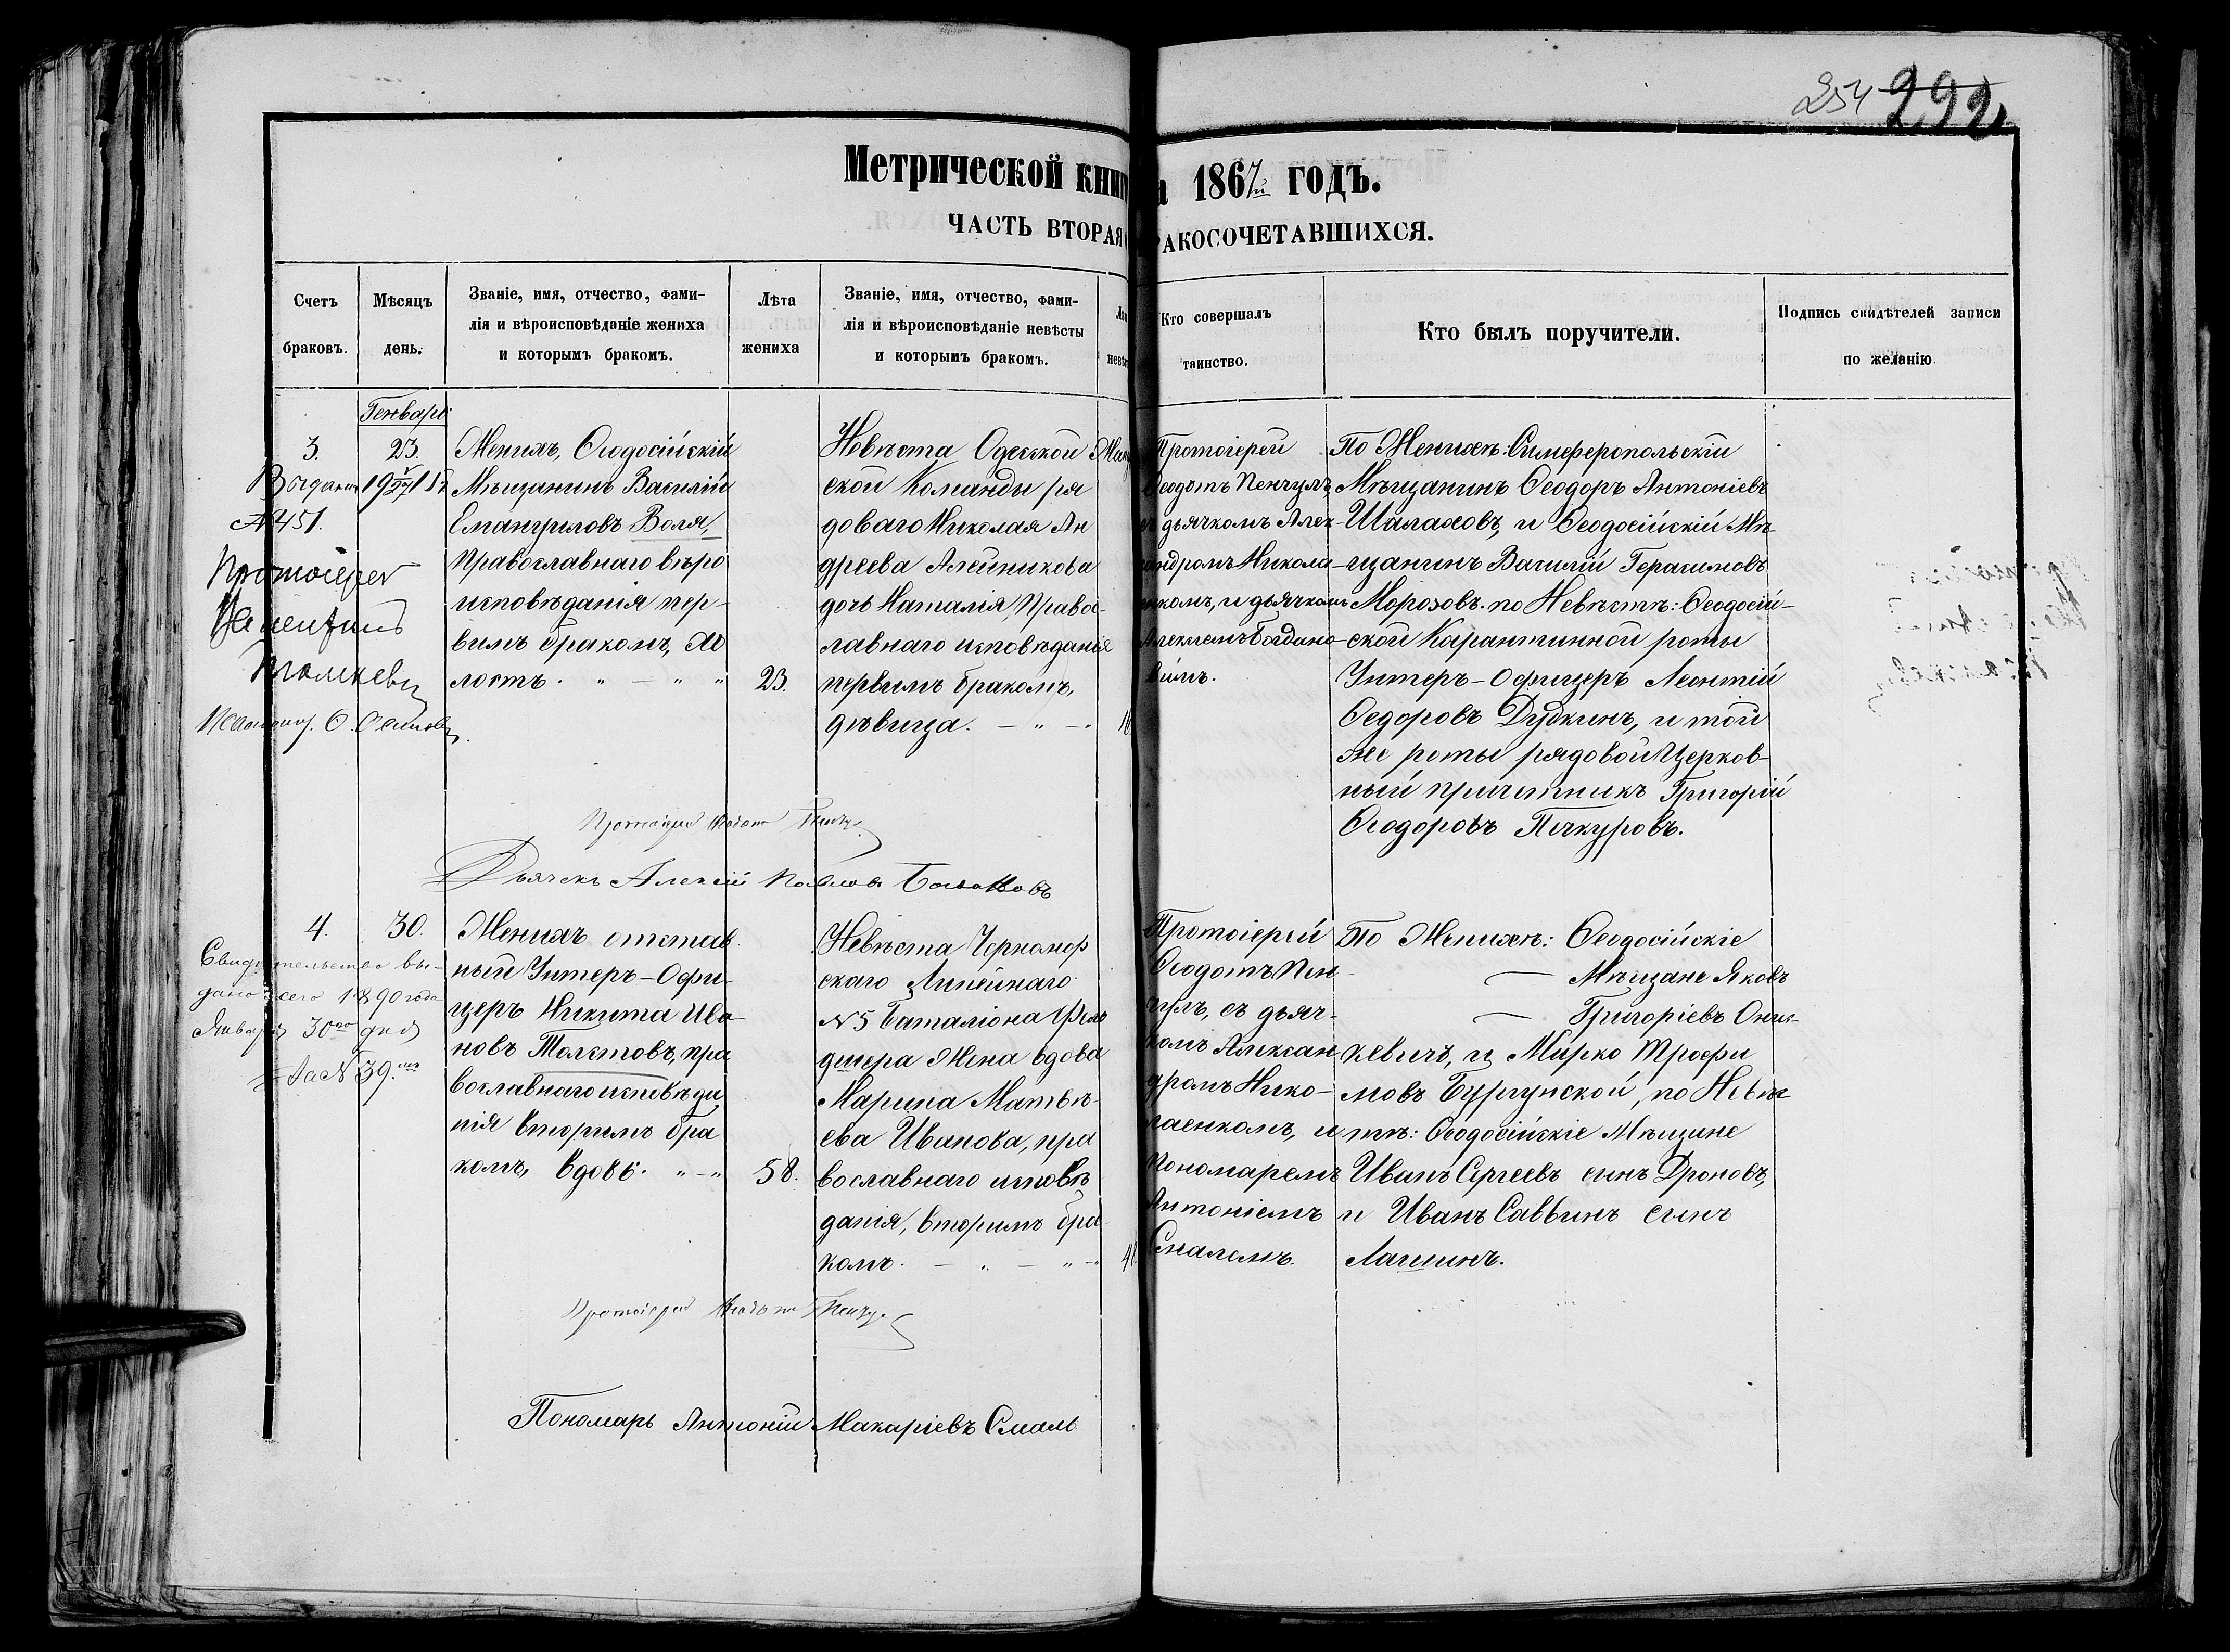 254 292
Метрической книг а 1867й годъ.
ЧАСТЬ ВТОРАЯ РАКОСОЧЕТАВШИХСЯ.
Счетъ
браковъ.
Мѣсяцъ
день.
Званіе, имя, отчество, фами-
лія и вѣроисповѣданіе жениха
и которымъ бракомъ.
Лѣта
жениха
Званіе, имя, отчество, фами-
лія и вѣроисповѣданіе невѣсты
и которымъ бракомъ.
Кто совершалъ
таинство.
Кто былъ поручители.
Подпись свидѣтелей записи
по желанію
Генварь
3.
23.
№ 451.
Протоіерей
Женихъ, Ѳеодосійскій
Мѣщанинъ Василій
Емануиловъ Воля,
Православнаго вѣро
исповѣданія пер-
вымъ бракомъ, хо
лостъ.
23.
Невѣста Одесской
ской Команды ря
доваго Николая Ан
дреева Алейникова
дочь Наталія, Правос-
лавнаго исповѣданія
первымъ бракомъ,
дѣвица.
Протоіерей
Ѳеодотъ Пенчулъ
съ дьячкомъ Алек-
сандромъ Никола-
енкомъ, и дьячкомъ
Алексѣемъ Богдано-
вымъ.
По Женихѣ: Симферопольскій
Мѣщанинъ Ѳеодоръ Антоніевъ
Шалаховъ, и Ѳеодосійскій Мѣ-
щанинъ Василій Герасимовъ
Морозовъ. по Невѣстѣ: Ѳеодосій-
ской Карантинной роты
Унтеръ-Офицеръ Леонтій
Ѳедоровъ Дудкинъ, и той
же роты рядовой Церков-
ный причетникъ Григорій
Ѳеодоровъ Печкуровъ.
Протоіерей Ѳеодотъ Пенчу
Дьячекъ Алексій Павловъ
4.
30.
Свидѣтельство вы-
дано сего 1890 года
Января 30го дня
за № 39.
Женихъ отстав
ный Унтеръ-Офи-
церъ Никита Ива-
новъ Толстовъ, пра
вославнаго исповѣда
нія вторымъ бра
комъ, вдовъ.
58.
Невѣста Черномор
скаго Линейнаго
№ 5 Баталіона Фель
дшера Жена вдова
Марина Матвѣ-
ева Иванова, пра
вославнаго исповѣ
данія, вторымъ бра-
комъ.
Протоіерей
Ѳеодотъ Пен-
чулъ, съ дьяч-
комъ Алексан
дромъ Нико-
лаенкомъ, и
Пономаремъ
Антоніемъ
Смалемъ.
По Женихѣ: Ѳеодосійскіе
Мѣщане Яковъ
Григоріевъ
кевичъ, и Мирко Трофи
мовъ Бургунской, по Невѣс
тѣ: Ѳеодосійскіе Мѣщане
Иванъ Сергеевъ сынъ Дроновъ,
и Иванъ Саввинъ сынъ
Лашинъ.
Протоіерей Ѳеодотъ Пенчу
Пономарь Антоній Макаріевъ Смаль